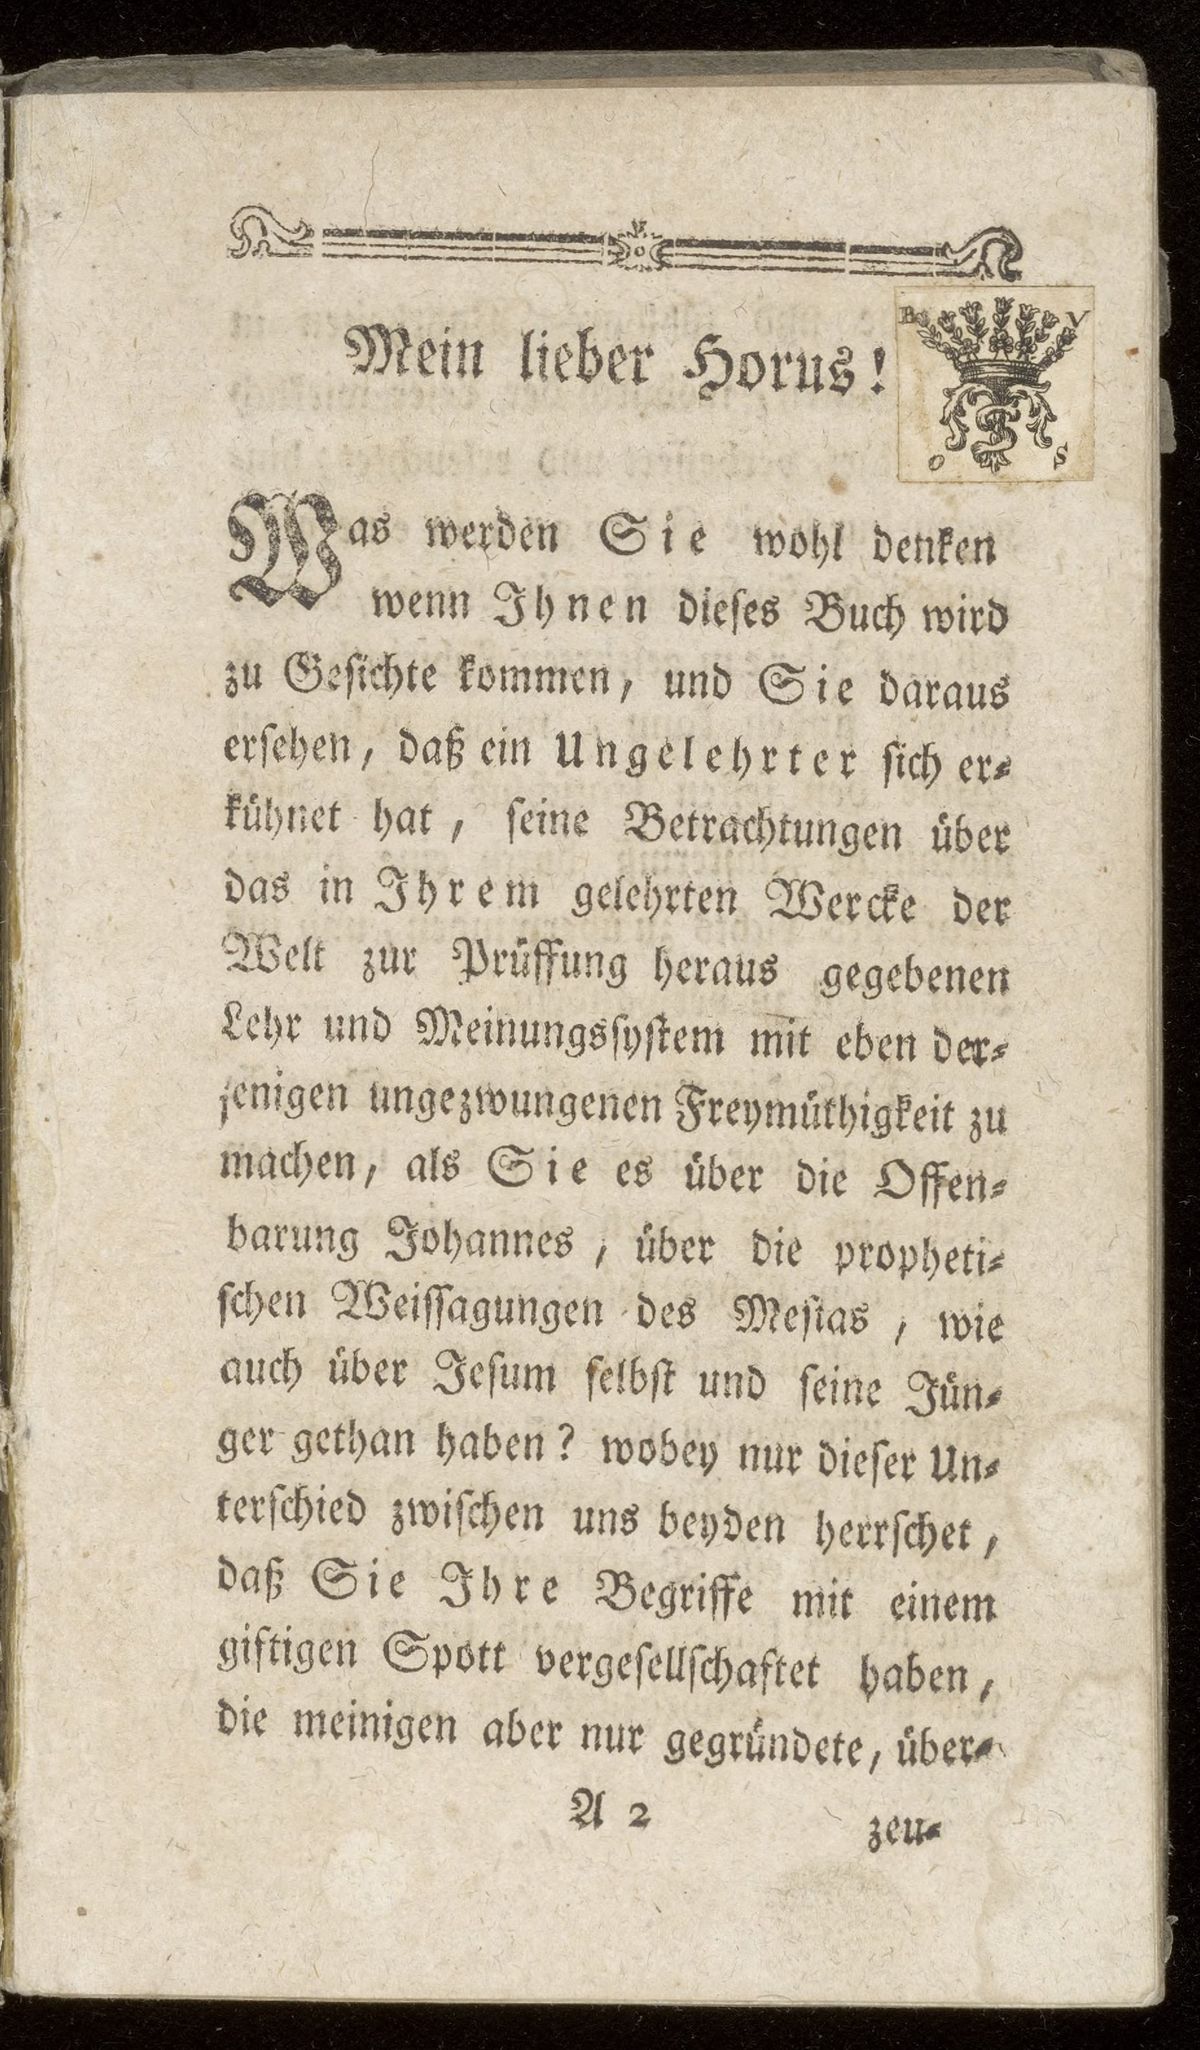 Mein lieber Horus!
Was werden Sie wohl denken
wenn Ihnen dieses Buch wird
zu Gesichte kommen, und Sie daraus
ersehen, daß ein Ungelehrter sich er⸗
kühnet hat, seine Betrachtungen über
das in Ihrem gelehrten Wercke der
Welt zur Prüffung heraus gegebenen
Lehr und Meinungssystem mit eben der⸗
jenigen ungezwungenen Freymüthigkeit zu
machen, als Sie es über die Offen⸗
barung Johannes, über die propheti⸗
schen Weissagungen des Mesias, wie
auch über Jesum selbst und seine Jün⸗
ger gethan haben? wobey nur dieser Un⸗
terschied zwischen uns beyden herrschet,
daß Sie Ihre Begriffe mit einem
giftigen Spott vergesellschaftet haben,
die meinigen aber nur gegründete, über⸗
A 2
zeu⸗